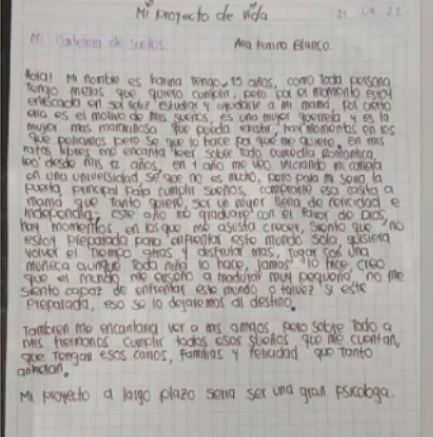 Mi proyecto de vida 21 04 22
Mi Cartelera de sueños Ana Karina Blanco
Hola! Mi nombre es karina tengo 15 años, como toda persona
tengo metas que quiero cumplir, pero por el momento estoy
enfocada en ser feliz estudiar y ayudarle a mi mamá, por cierto
ella es el motivo de mis sueños, es una mujer guerrera y es la
mujer mas maravillosa que pueda existir, hay momentos en los
que peliamos pero se que lo hace por que me quiere. En mis
ratos libres me encanta leer sobre todo comedia romantica,
leo desde mis 12 años, en 1 año me veo iniciando mi carrera
en una universidad, se que no es mucho, pero para mi sera la
puerta principal para cumplir sueños, comprarle esa casita a
mamá que tanto quiere, ser un mujer llena de felicidad e
independia, este año me graduare con el favor de Dios,
hay momentos en los que me asusta crecer, siento que no
estoy preparada para enfrentar este mundo sola, quisiera
volver el tiempo atras y disfrutar mas, jugar con una
muñeca aunque toda niña lo hace, jamas lo hice, creo
que el mundo me enseño a madurar muy pequeña, no me
siento capaz de enfrentar este mundo o talvez si este
preparada, eso se lo dejaremos al destino.
Tambien me encantaria ver a mis amigos, pero sobre todo a
mis hermanos cumplir todos esos sueños que me cuentan,
que tengan esos carros, familias y felicidad que tanto
anhelan.
Mi proyecto a largo plazo seria ser una gran psicologa.